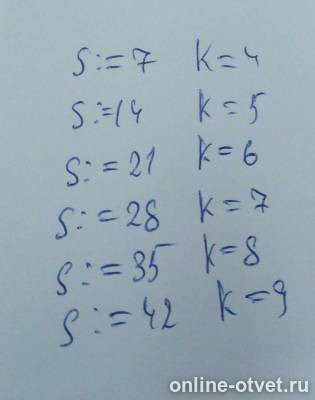 S:=7 k=4
S:=14 k=5
S:=21 k=6
S:=28 k=7
S:=35 k=8
S:=42 k=9
online-otvet.ru